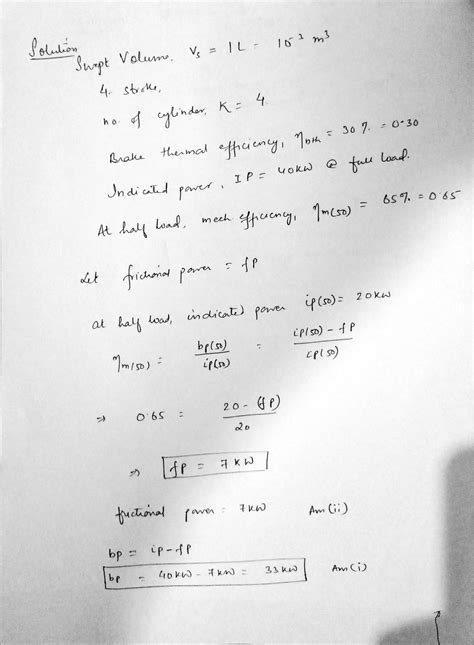 Solution
Swept Volume, Vs = 1L = 10⁻³ m³
4. stroke,
no. of cylinder, K = 4.
Brake thermal efficiency, ηbth = 30% = 0.30
Indicated power, IP = 40kW @ full load.
At half load, mech efficiency, ηm(50) = 65% = 0.65
Let frictional power = fP
at half load, indicated power ip(50) = 20kW
ηm(50) = bp(50)/ip(50) = ip(50) - fP/ip(50)
⇒ 0.65 = 20 - (fP)/20
⇒ fP = 7 kW
frictional power = 7kW Ans(ii)
bp = ip - fP
bp = 40kW - 7kW = 33kW Ans(i)